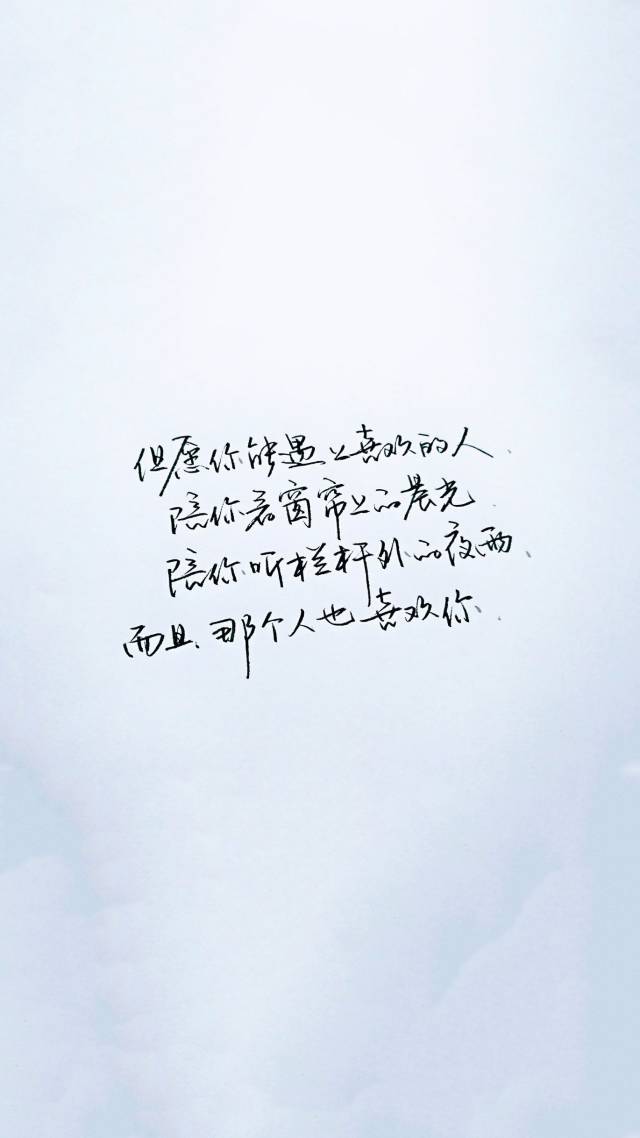 但愿你能遇上喜欢的人、
陪你看窗帘上的晨光、
陪你听栏杆外的夜雨、
而且、那个人也喜欢你、